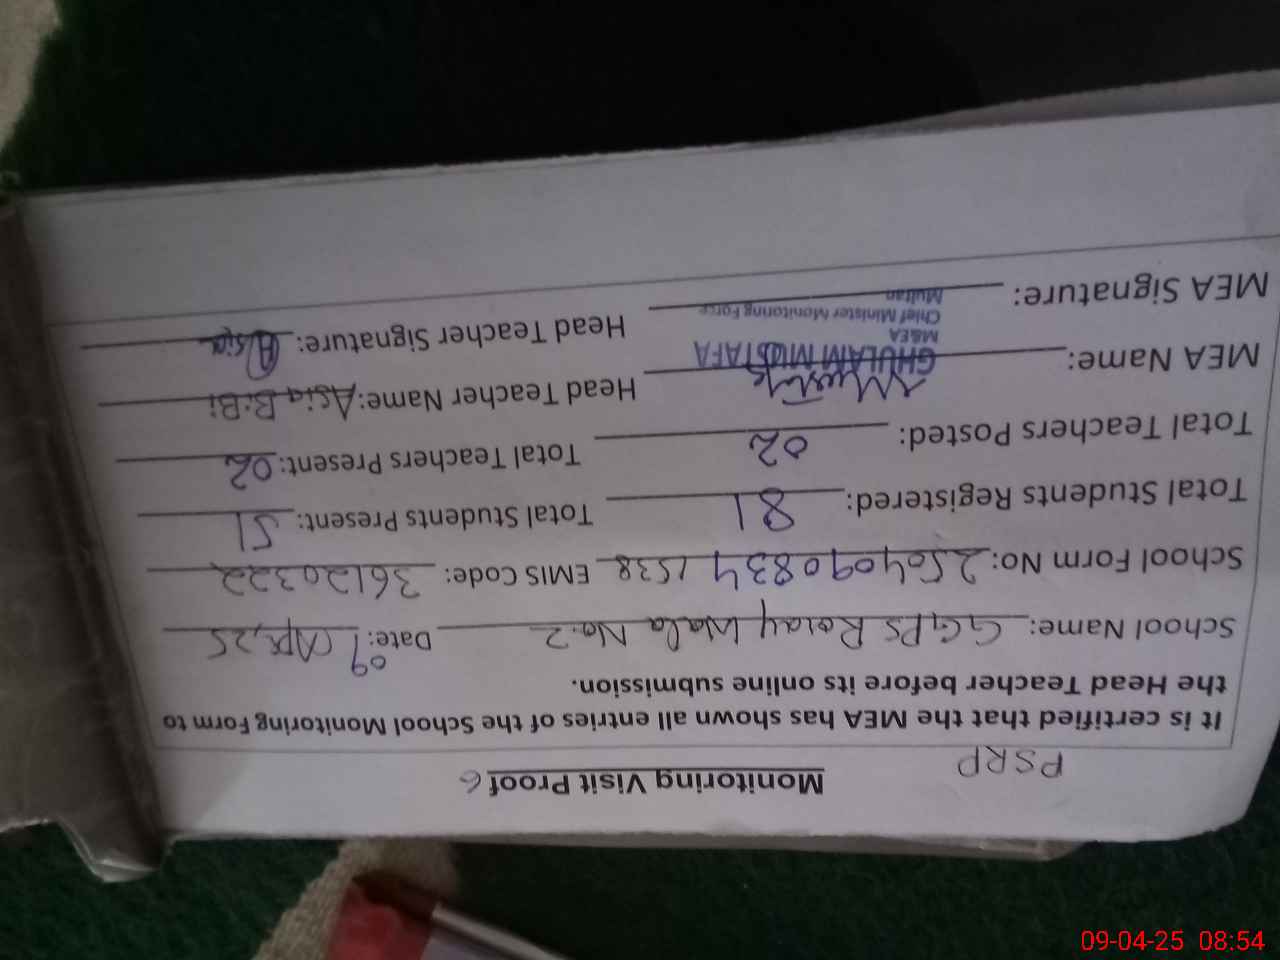 PSRP
Monitoring Visit Proof 6
It is certified that the MEA has shown all entries of the School Monitoring Form to
the Head Teacher before its online submission.
School Name: GGPS Roray Wala No.2 Date: 09/Apr,25
School Form No: 2504090834 1538 EMIS Code: 36120322
Total Students Registered: 81 Total Students Present: 51
Total Teachers Posted: 02 Total Teachers Present: 02
MEA Name: GHULAM MUSTAFA Head Teacher Name: Asia BiBi
M&EA
Chief Minister Monitoring Force
Multan
MEA Signature: Head Teacher Signature: Asia
09-04-25 08:54